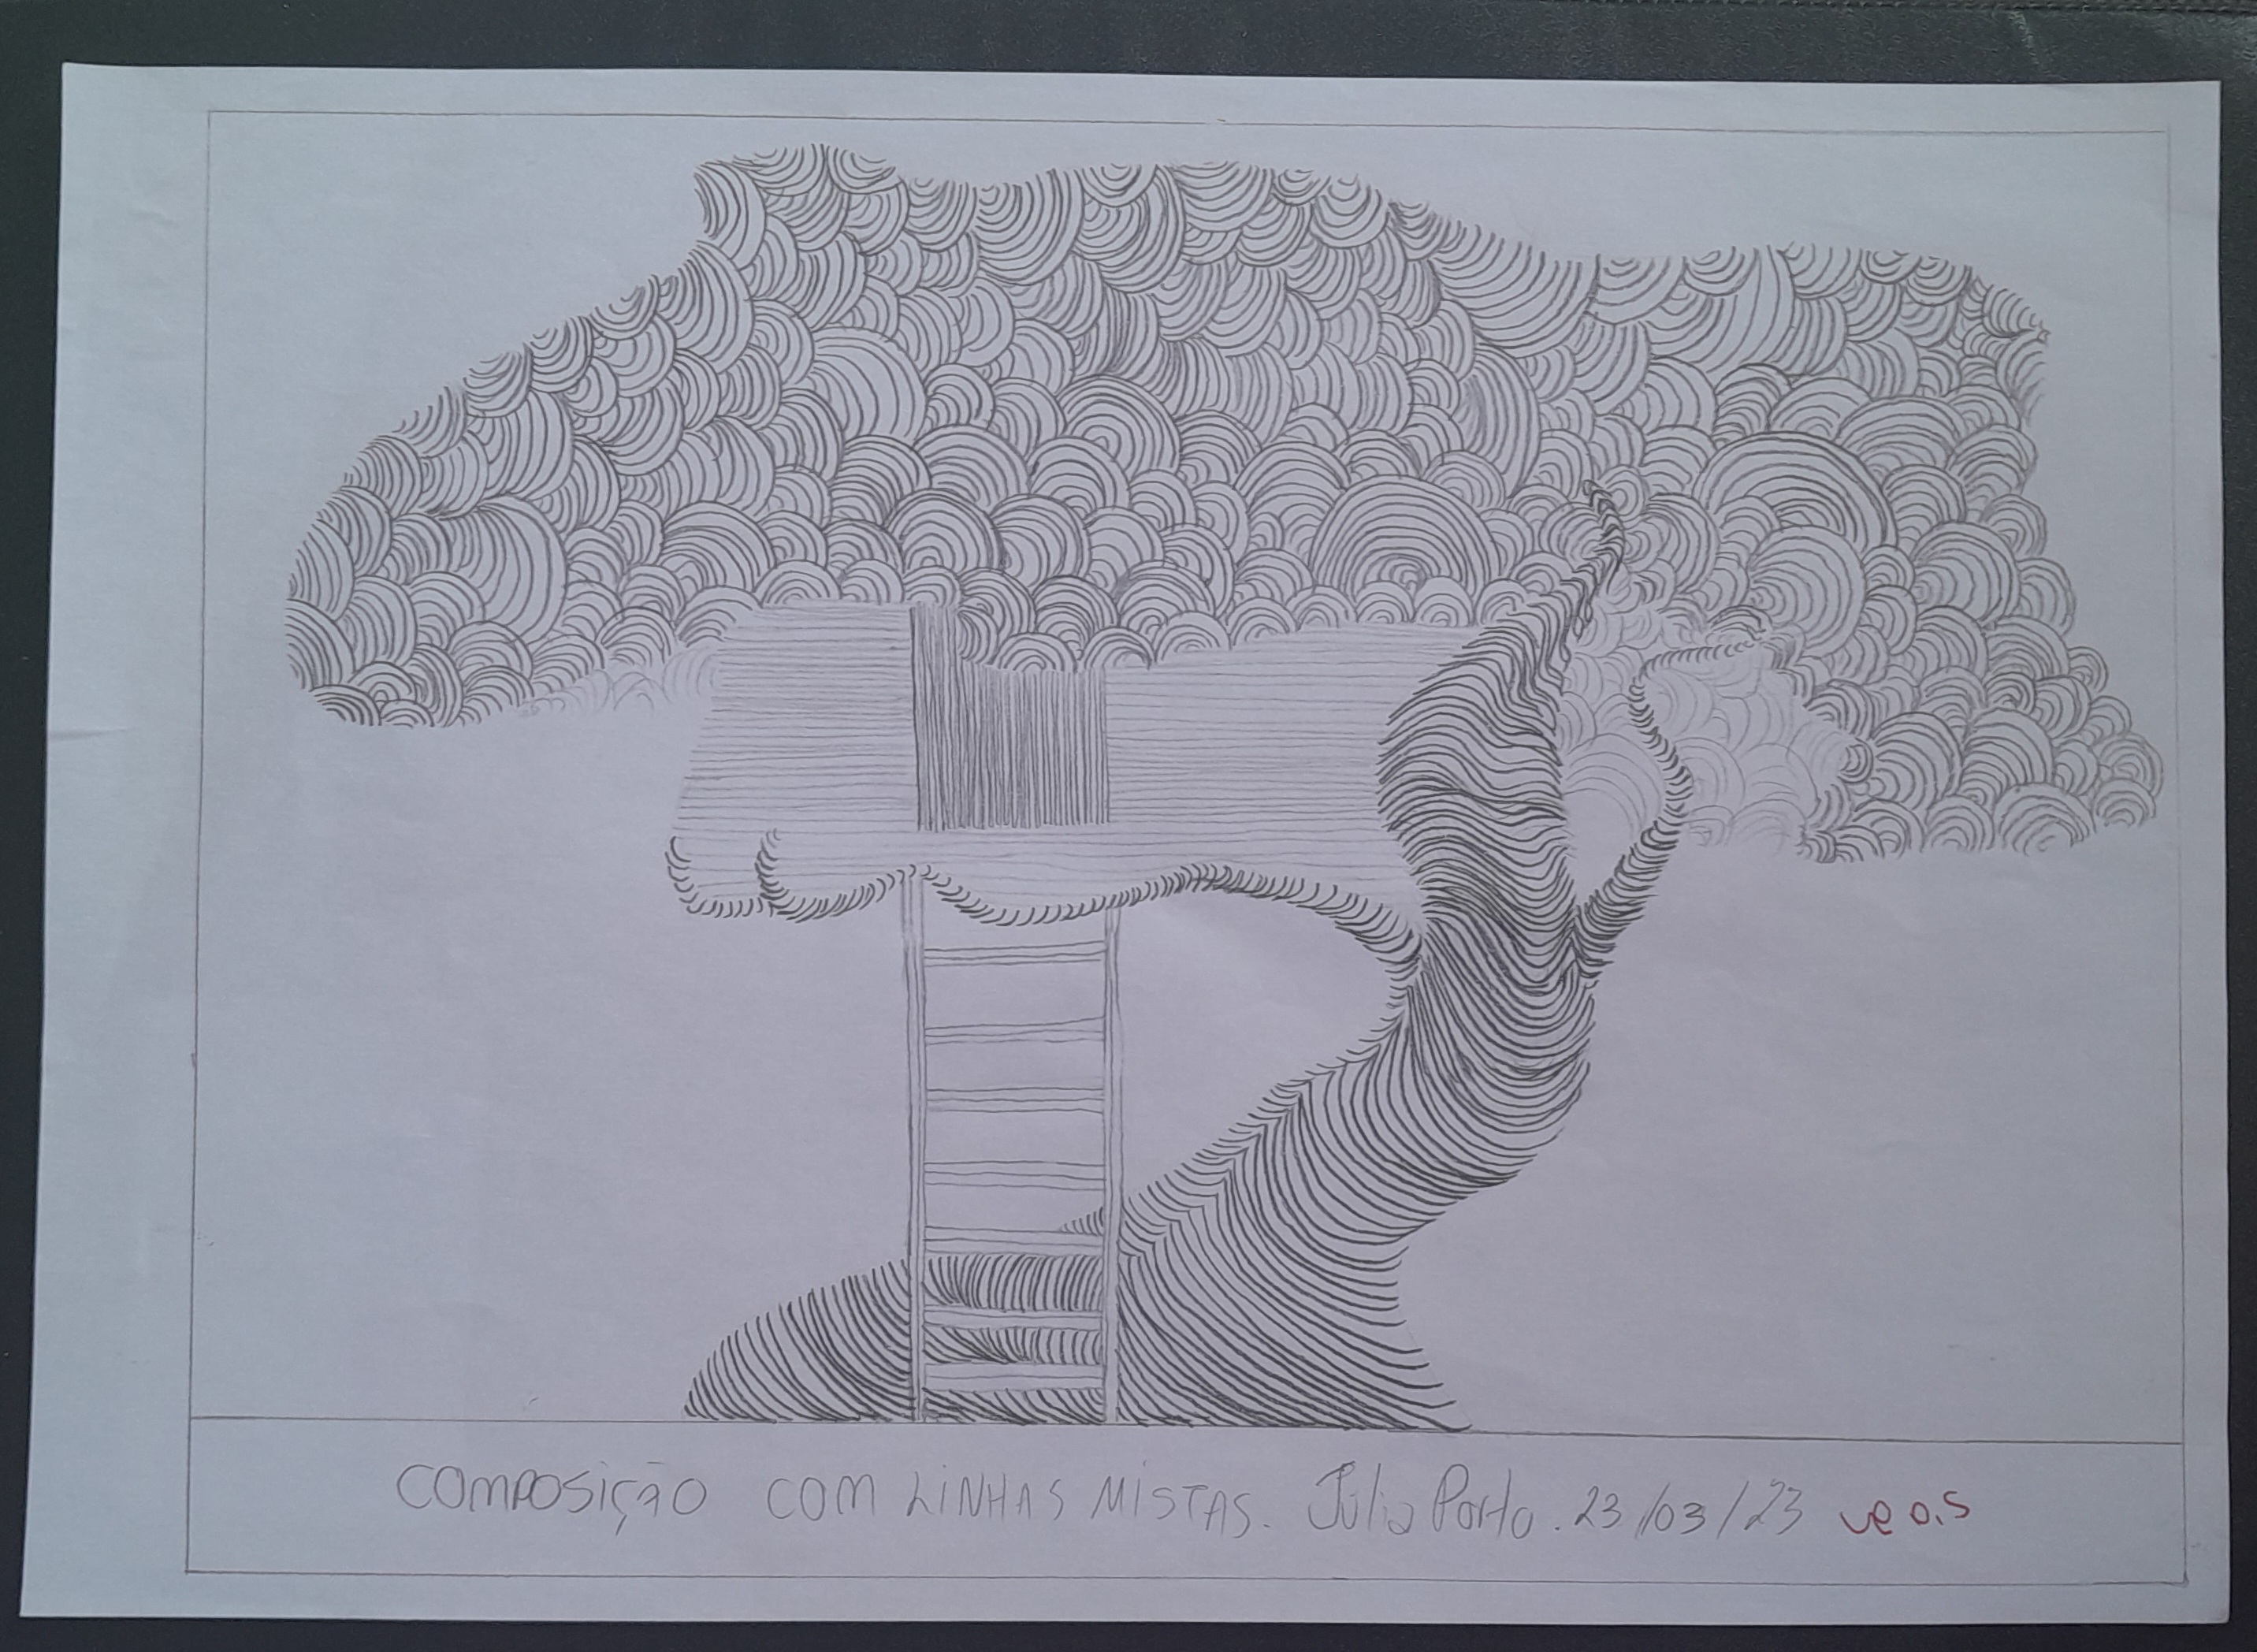 COMPOSIÇÃO COM LINHAS MISTAS. Júlia Porto. 23/03/23 ve 0,5